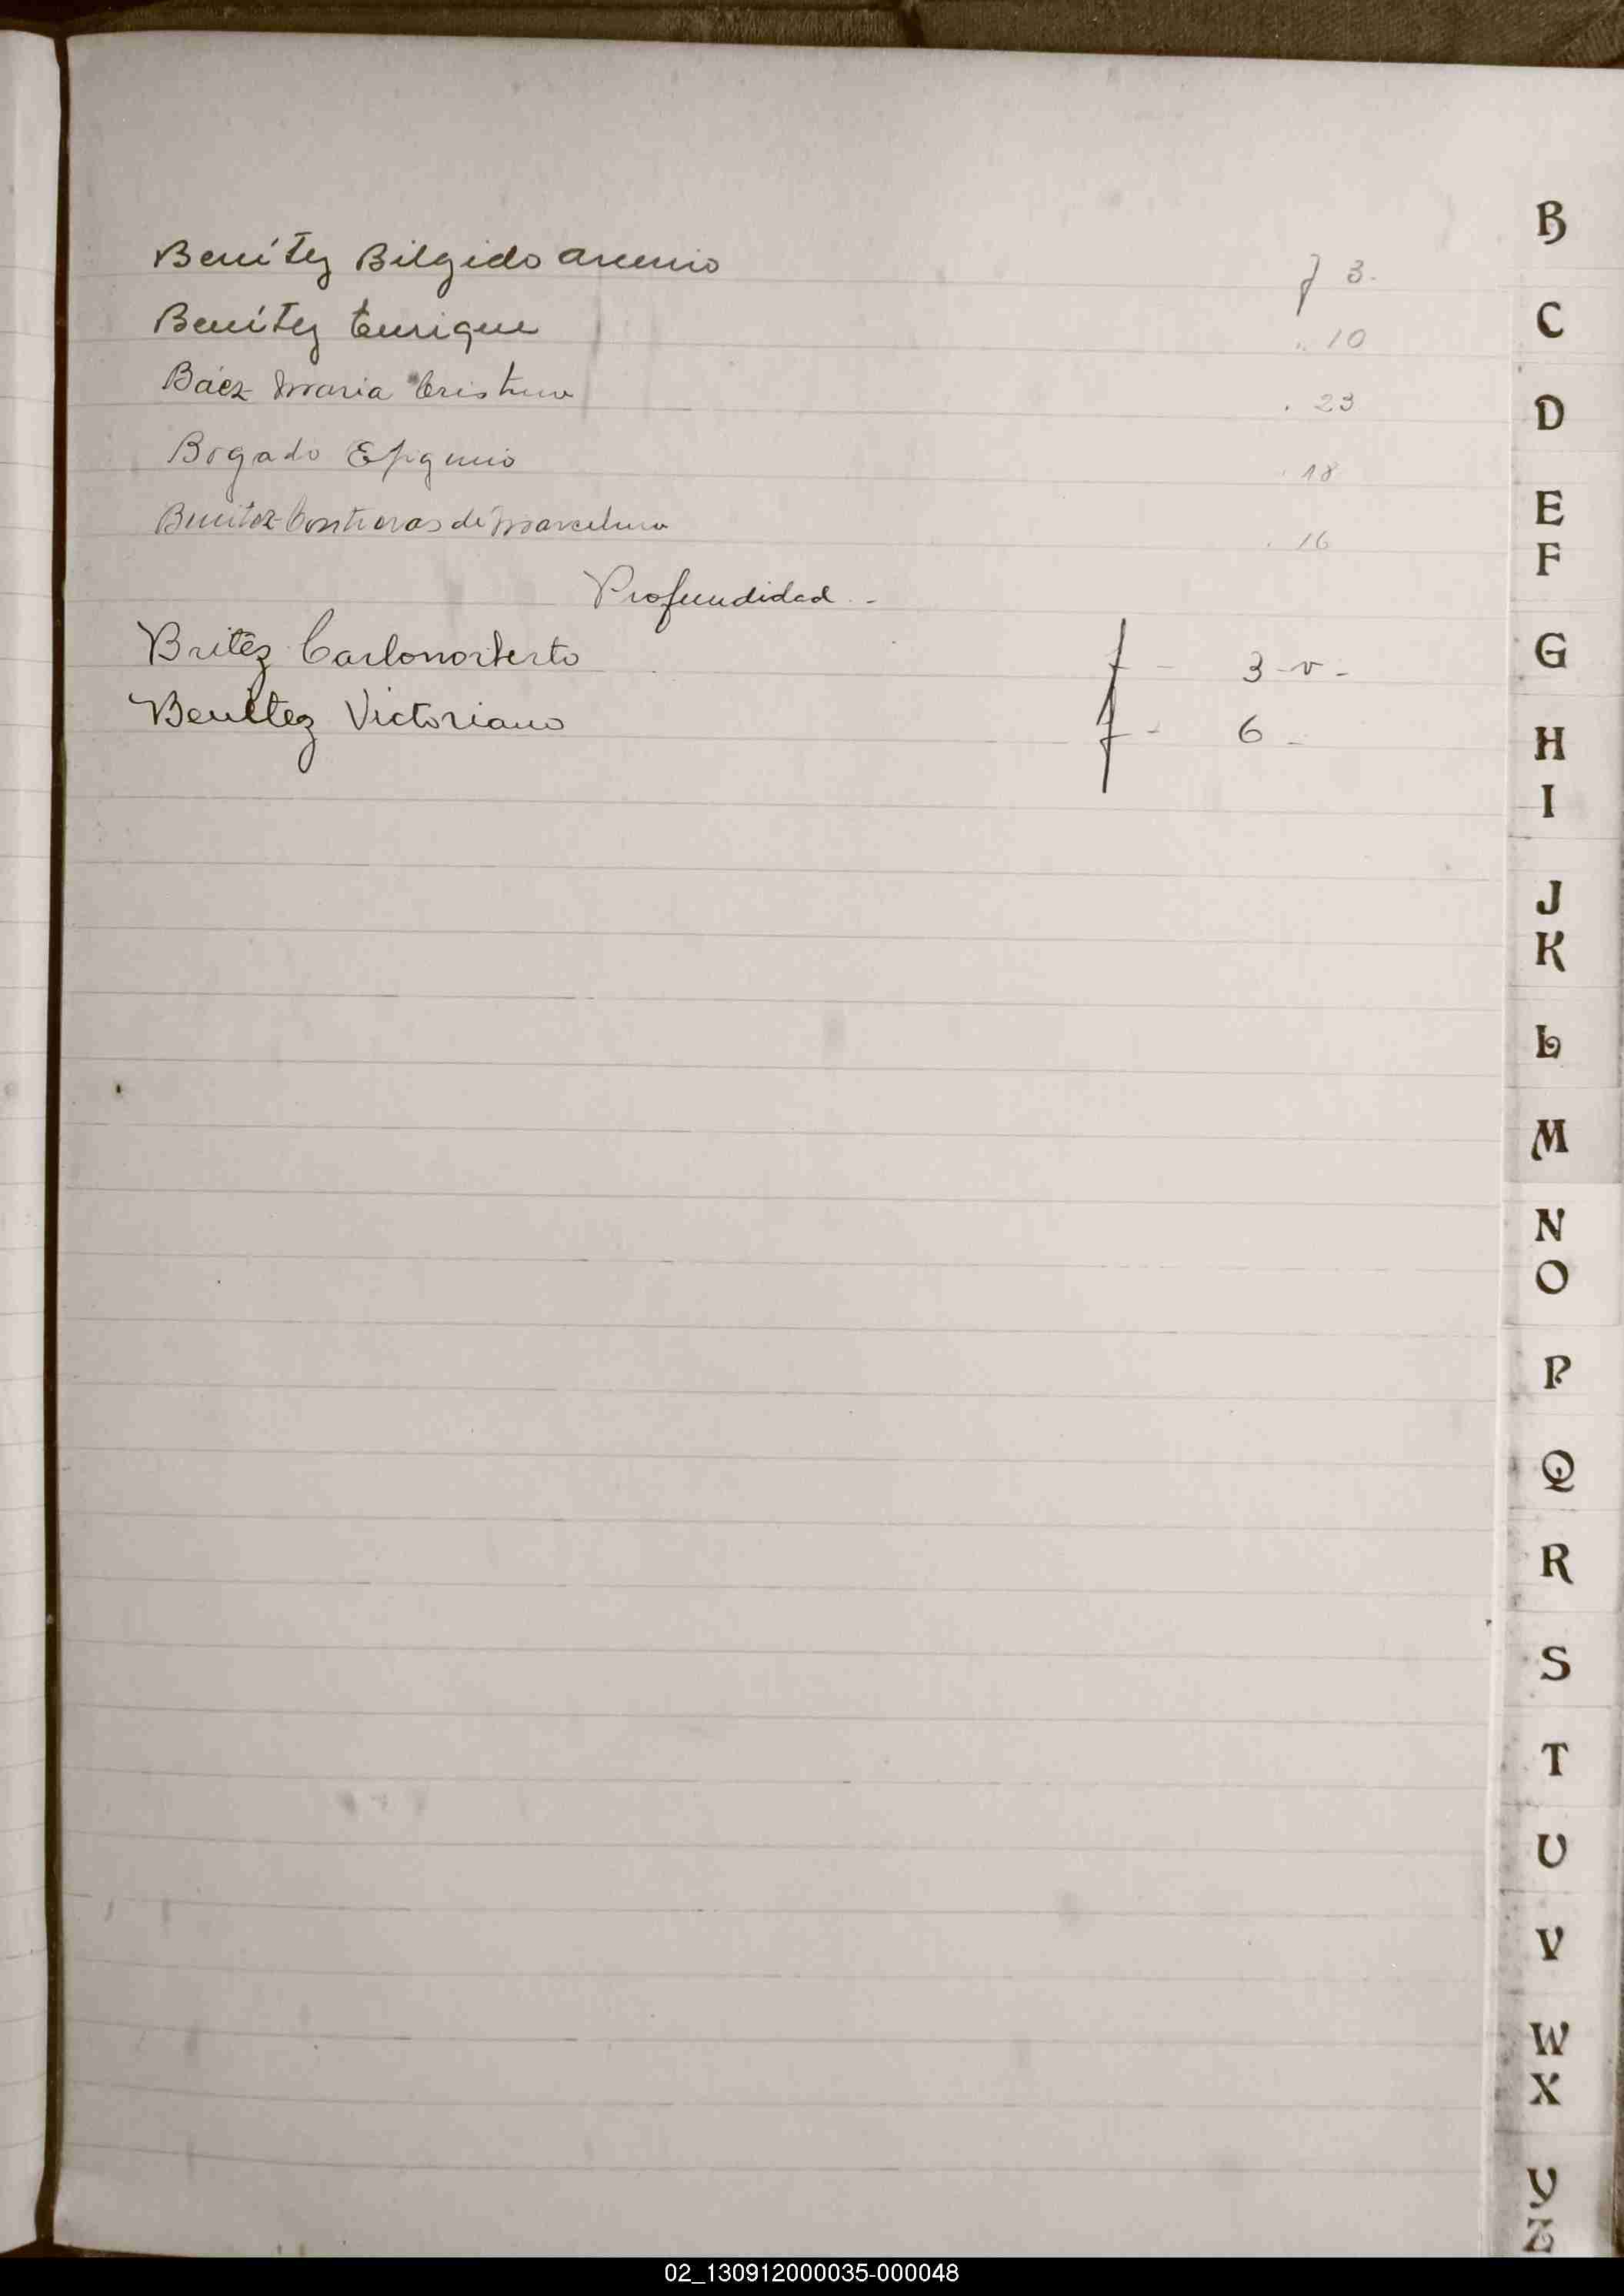 Benítez Bilgido Arcenio f 3.
Benítez Enrique " 10
Báez Maria Cristina . 23
Bogado Epigenio . 18
Benitez Contreras de Marcelina . 16
Profundidad -
Britez Carlonorberto f - 3 - v -
Benitez Victoriano f - 6 -
B
C
D
E
F
G
H
I
J
K
L
M
N
O
P
Q
R
S
T
U
V
W
X
Y
Z
02_130912000035-000048